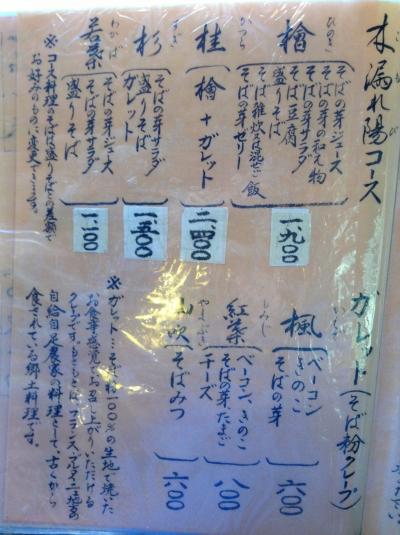 木漏れ陽コース
こもれび
檜
ひのき
そばの芽ジュース
そばの芽の和え物
そばの芽サラダ
そば豆腐
盛りそば
そば雑炊又は混ぜご飯
そばの芽ゼリー
一、九〇〇
桂
かつら
檜+ガレット
二、四〇〇
杉
すぎ
そばの芽サラダ
盛りそば
ガレット
一、五〇〇
若葉
わかば
そばの芽ジュース
そばの芽サラダ
盛りそば
一、一〇〇
※コース料理のそばは盛りそばとの差額で
お好みのものに変更できます。
ガレット(そば粉クレープ)
楓
ベーコン
きのこ
そばの芽
六〇〇
紅葉
もみじ
ベーコン、きのこ
そばの芽、たまご
チーズ
八〇〇
山吹
やまぶき
そばみつ
六〇〇
※ガレット…そば粉100%の生地で焼いた
お食事感覚でお召し上がりいただける
クレープです。もともとは、フランス・ブルターニュ地方の
自給自足農家の料理として、古くから
食されている郷土料理です。